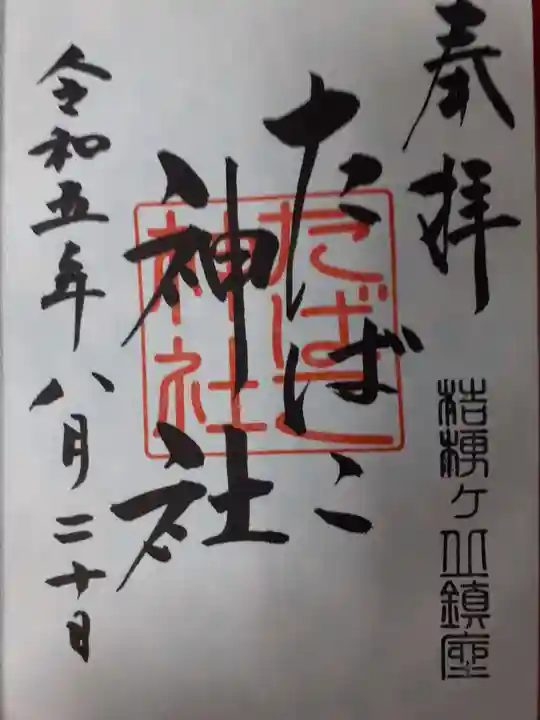 奉拝
桔梗ヶ丘鎮座
たばこ
神社
たばこ
神社
令和五年八月二十日